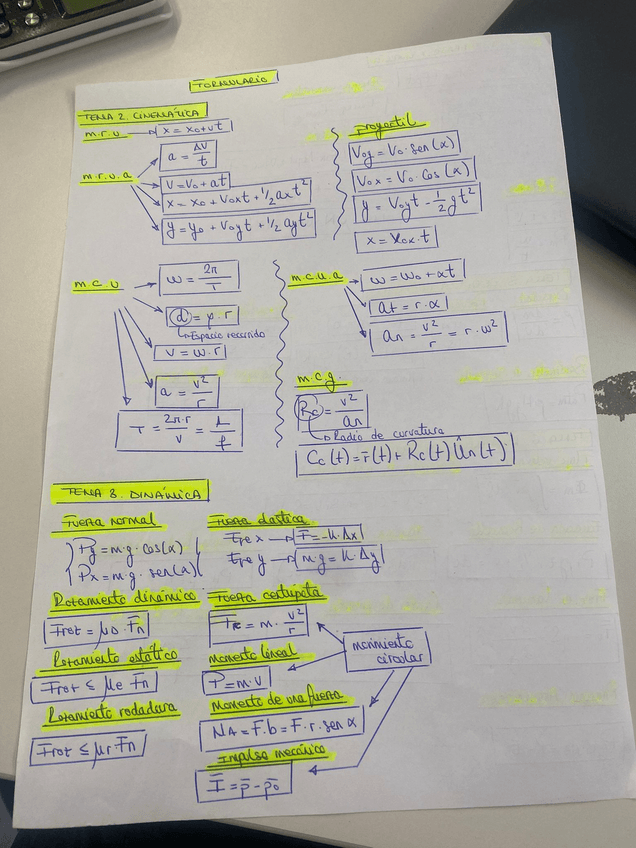 FORMULARIO
TEMA 2. CINEMÁTICA
m.r.u → x = x₀+vt
m.r.u.a
a = ΔV/t
v = v₀ + at
x = x₀ + v₀xt + 1/2 axt²
y = y₀ + v₀yt + 1/2 ayt²
proyectil
V₀y = V₀ · sen(α)
V₀x = V₀ · cos(α)
y = V₀yt - 1/2 gt²
x = V₀x · t
m.c.u
ω = 2π/T
d = φ · r
↳ Espacio recorrido
v = ω · r
a = v²/r
T = 2π·r/v = 1/f
m.c.u.a
ω = ω₀ + αt
at = r · α
an = v²/r = r · ω²
m.c.g.
Rc = v²/an
↳ Radio de curvatura
Cc(t) = r̄(t) + Rc(t) Ûn(t)
TEMA 3. DINÁMICA
Fuerza normal
Py = m·g·cos(α)
Px = m·g·sen(α)
Fuerza elástica
Eje x → F̄ = -K·Δx
Eje y → m·g = K·Δy
Rozamiento dinámico
Froz = μD · Fn
Fuerza centrípeta
Fc = m · v²/r
Rozamiento estático
Froz ≤ μe Fn
Momento lineal
P = m·v
movimiento
circular
Rozamiento rodadura
Froz ≤ μr Fn
Momento de una fuerza
NA = F·b = F·r·sen α
Impulso mecánico
Ī = p̄ - p̄₀